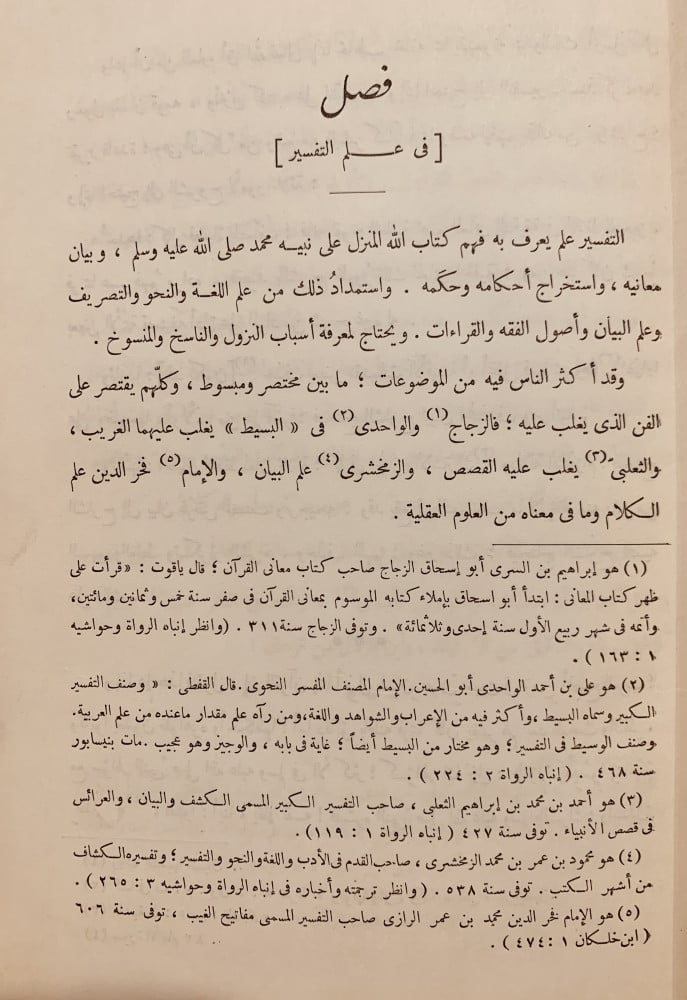 فصل
[ فى علم التفسير ]
التفسير علم يعرف به فهم كتاب الله المنزل على نبيه محمد صلى الله عليه وسلم ، وبيان
معانيه ، واستخراج أحكامه وحكَمه . واستمدادُ ذلك من علم اللغة والنحو والتصريف
وعلم البيان وأصول الفقه والقراءات . ويحتاج لمعرفة أسباب النزول والناسخ والمنسوخ .
وقد أكثر الناس فيه من الموضوعات ؛ ما بين مختصر ومبسوط ، وكلّهم يقتصر على
الفن الذى يغلب عليه ؛ فالزجاج(١) والواحدى(٢) فى « البسيط » يغلب عليهما الغريب ،
والثعلبىّ(٣) يغلب عليه القصص ، والزمخشرى(٤) علم البيان ، والإمام(٥) فخر الدين علم
الكلام وما فى معناه من العلوم العقلية .
(١) هو إبراهيم بن السرى أبو إسحاق الزجاج صاحب كتاب معانى القرآن ؛ قال ياقوت : «قرأت على
ظهر كتاب المعانى : ابتدأ أبو اسحاق بإملاء كتابه الموسوم بمعانى القرآن فى صفر سنة خمس وثمانين ومائتين،
وأتمه فى شهر ربيع الأول سنة إحدى وثلاثمائة» . وتوفى الزجاج سنة ٣١١ . (وانظر إنباه الرواة وحواشيه
١ : ١٦٣ ) .
(٢) هو على بن أحمد الواحدى أبو الحسين.الإمام المصنف المفسر النحوى .قال القفطى : « وصنف التفسير
الكبير وسماه البسيط ،وأكثر فيه من الإعراب والشواهد واللغة،ومن رآه علم مقدار ماعنده من علم العربية.
وصنف الوسيط فى التفسير ؛ وهو مختار من البسيط أيضاً ؛ غاية فى بابه ، والوجيز وهو عجيب .مات بنيسابور
سنة ٤٦٨ . ( إنباه الرواة ٢ : ٢٢٤ ) .
(٣) هو أحمد بن محمد بن إبراهيم الثعلبى ، صاحب التفسير الكبير المسمى الكشف والبيان ، والعرائس
فى قصص الأنبياء . توفى سنة ٤٢٧ ( إنباه الرواة ١ : ١١٩) .
(٤) هو محمود بن عمر بن محمد الزمخشرى ، صاحب القدم فى الأدب واللغة والنحو والتفسير ؛ وتفسيره الكشاف
من أشهر الكتب . توفى سنة ٥٣٨ . ( وانظر ترجمته وأخباره فى إنباه الرواة وحواشيه ٣ : ٢٦٥ ) .
(٥) هو الإمام فخر الدين محمد بن عمر الرازى صاحب التفسير المسمى مفاتيح الغيب ، توفى سنة ٦٠٦
( ابن خلكان ١ : ٤٧٤ ) .